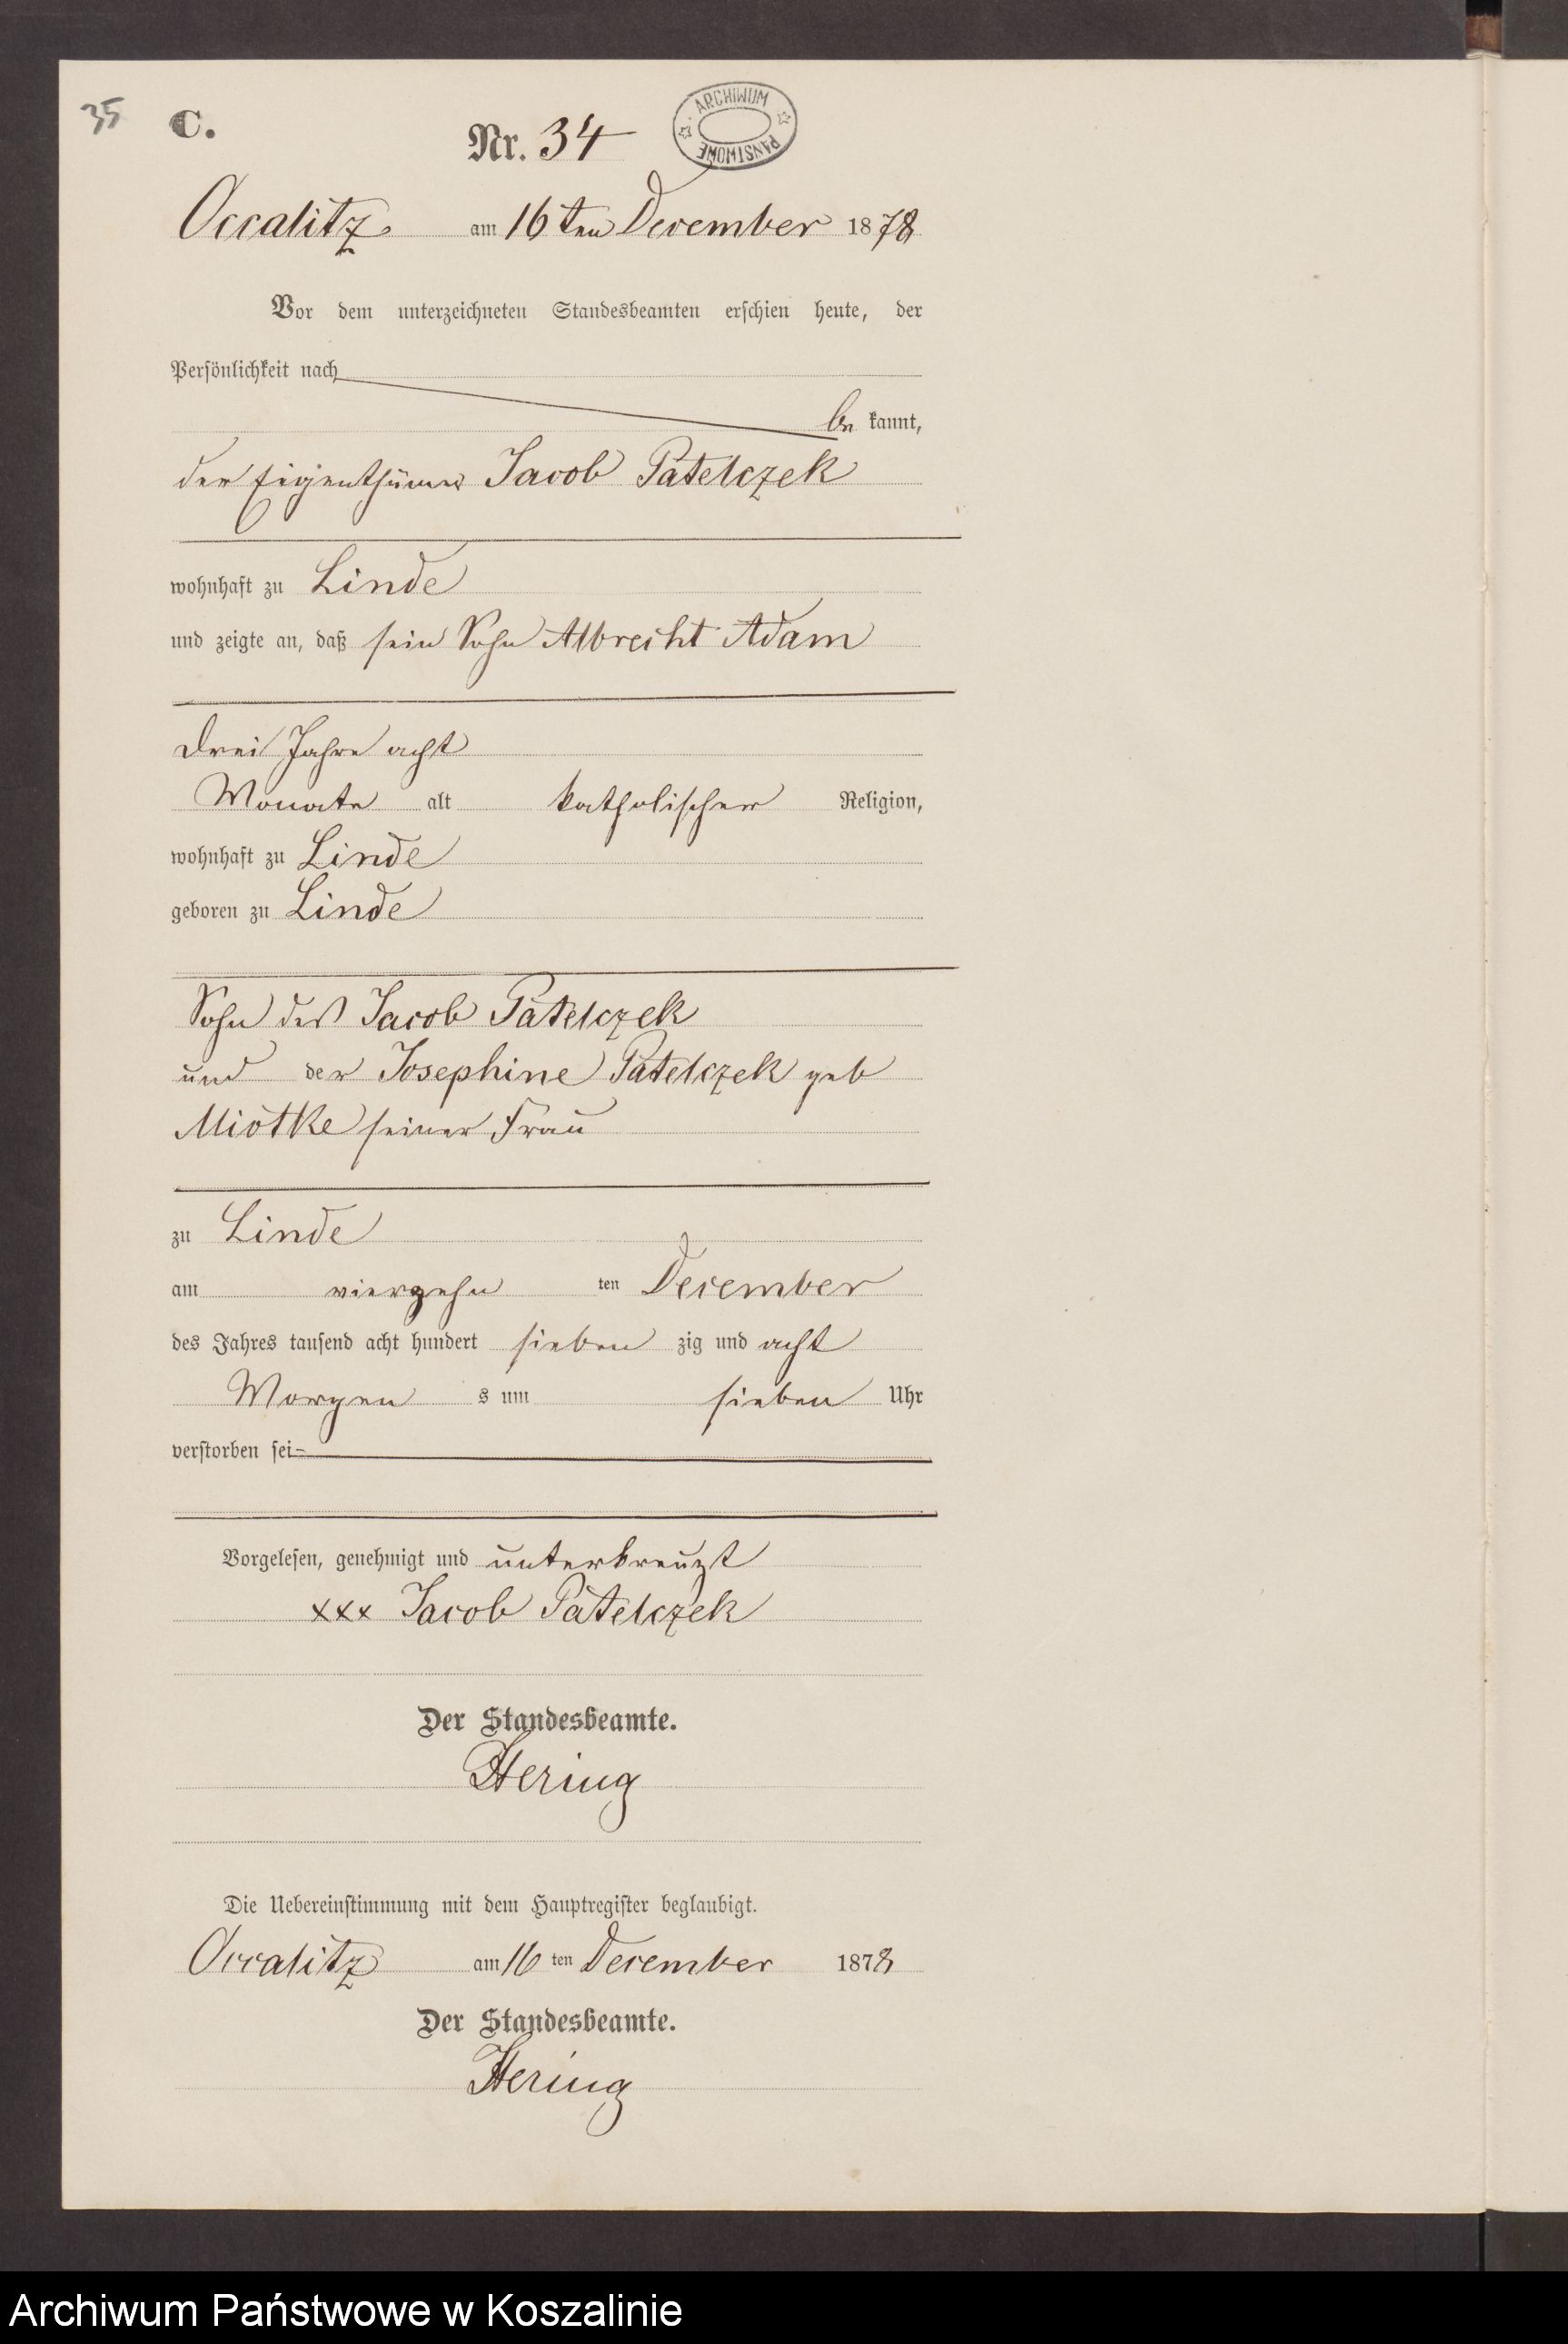 35 C.
Nr. 34
ARCHIWUM PAŃSTWOWE
Occalitz am 16ten December 1878
Vor dem unterzeichneten Standesbeamten erschien heute, der
Persönlichkeit nach
be kannt,
der Eigenthümer Jacob Patelczek
wohnhaft zu Linde
und zeigte an, daß sein Sohn Albrecht Adam
drei Jahre acht
Monate alt katholischer Religion,
wohnhaft zu Linde
geboren zu Linde
Sohn des Jacob Patelczek
und der Josephine Patelczek geb
Miotke seiner Frau
zu Linde
am vierzehn ten December
des Jahres tausend acht hundert sieben zig und acht
Morgen s um sieben Uhr
verstorben sei
Vorgelesen, genehmigt und unterkreuzt
xxx Jacob Patelczek
Der Standesbeamte.
Hering
Die Uebereinstimmung mit dem Hauptregister beglaubigt.
Occalitz am 16 ten December 1878
Der Standesbeamte.
Hering
Archiwum Państwowe w Koszalinie